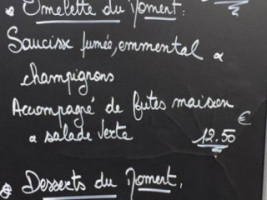 • Omelette du Moment:
Saucisse fumée, emmental &
champignons
Accompagné de frites maison
& salade verte 12.50 €
• Desserts du Moment,